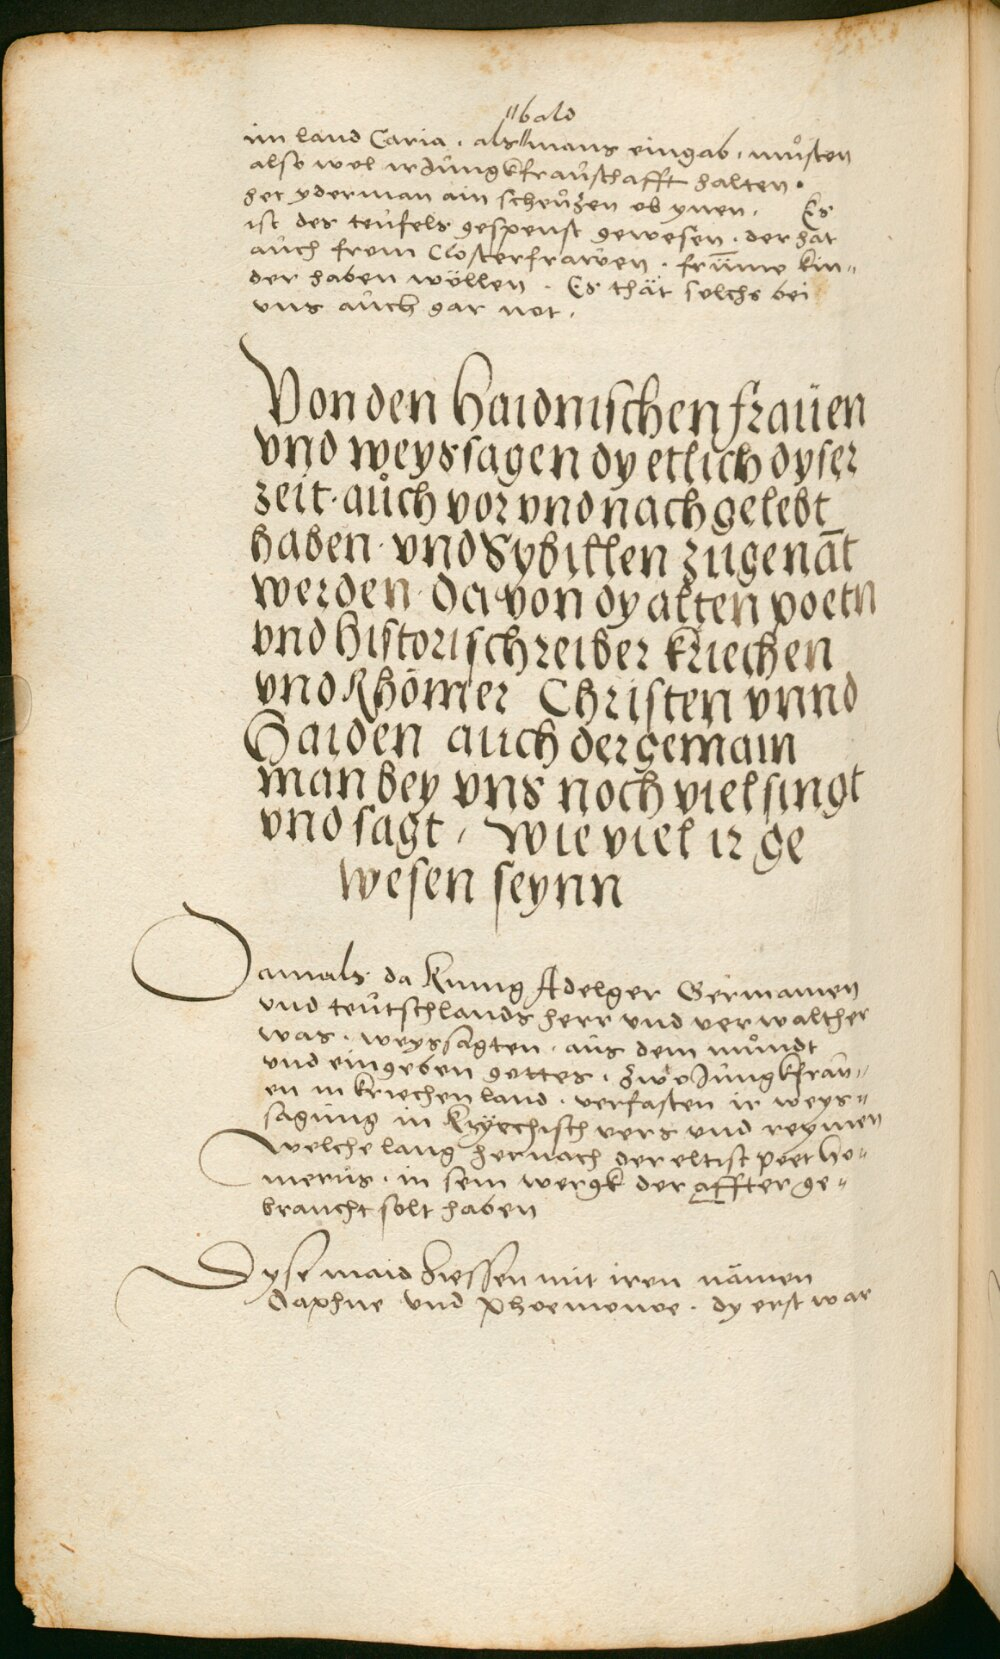 "bald
im land Caria . als "mans eingab . můsten
also wol ir Jungkfrauschafft halten .
het yderman ain scheůzen ob ynen . Es
ist des teufels gespenst gewesen . der hat
auch frem Closterfrawen . frum̄e kin=
der haben wöllen . Es thät solchs bei
vns auch gar not .
Von den Haidnischen fraüen
vnd weyssagen dy etlich dyser
zeit . aůch vor vnd nach gelebt
haben . vnd Sybillen zugenāt
werden . Da von dy alten poetn
vnd historischreiber kriechen
vnd Rhömer Christen vnnd
Haiden auch der gemain
man bey vns noch viel singt
vnd sagt . Wie viel ir ge
wesen seynn
Damals da Kunig Adelger Germanien
vnd teutschlands herr vnd verwalther
was . weyssagten . aus dem můndt
vnd eingeben gottes . zwo Jungkfrau=
en in kriechenland . verfasten ir weys=
sagung in Kryechisch vers vnd reymen
welche lang hernach der eltist poet Ho=
merus . in sein wergk der affter ge=
braucht solt haben
Dyse maid hiessen mit iren nämen
Daphne vnd Phoemonoe . dy erst war